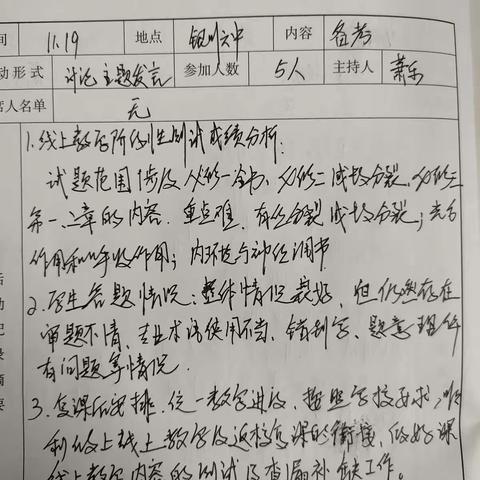 间 11.19 地点 银川六中 内容 备考
动形式 讨论 主题发言 参加人数 5人 主持人 萧乐
席人名单 无
1.线上教学阶段学生测试成绩分析:
试题范围涉及必修一全书、必修二减数分裂、必修三
第一、二章的内容.重点难.有丝分裂减数分裂;光合
作用和呼吸作用;内环境与神经调节
2.学生答题情况:整体情况较好,但仍然存在
审题不清、专业术语使用不当、错别字、题意理解
有问题等情况.
3.复课后安排.统一教学进度,按照学校要求,顺
利的线上教学及返校复课的衔接,做好课
线上教学内容的测试及查漏补缺工作。
活
动
记
录
摘
要